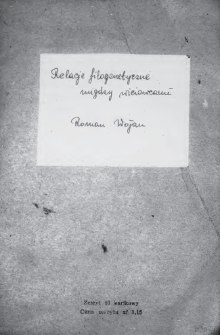 Relacje filogenetyczne
między wiciowcami
Roman Wojan
Zeszyt 60 kartkowy
Cena zeszytu zł 8,15